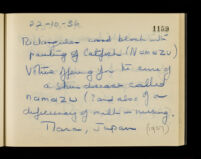 22-10-36
1159
Rectangular wood block with
painting of Catfish (Namazu)
Votive offering for the cure of
a skin disease called
namazu (and also of a
deficiency of milk in nursing.
Nara, Japan (1907)